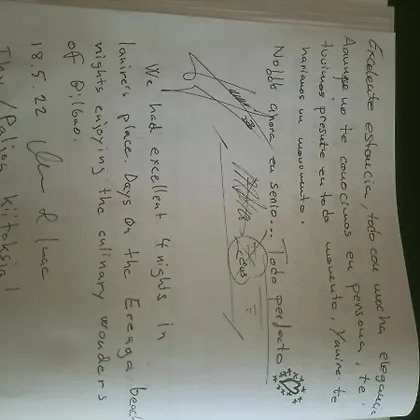 Excelente estancia, todo con mucha elegancia
Aunque no te conocimos en persona, te
tuvimos presente en todo momento, Yanire te
haríamos un monumento.
Nobb ahora en serio... Todo perfecto
We had excellent 4 nights in
Yanire's place. Days on the Ereaga beach
nights enjoying the culinary wonders
of Bilbao.
18.5.22
Thx / Paljon kiitoksia!